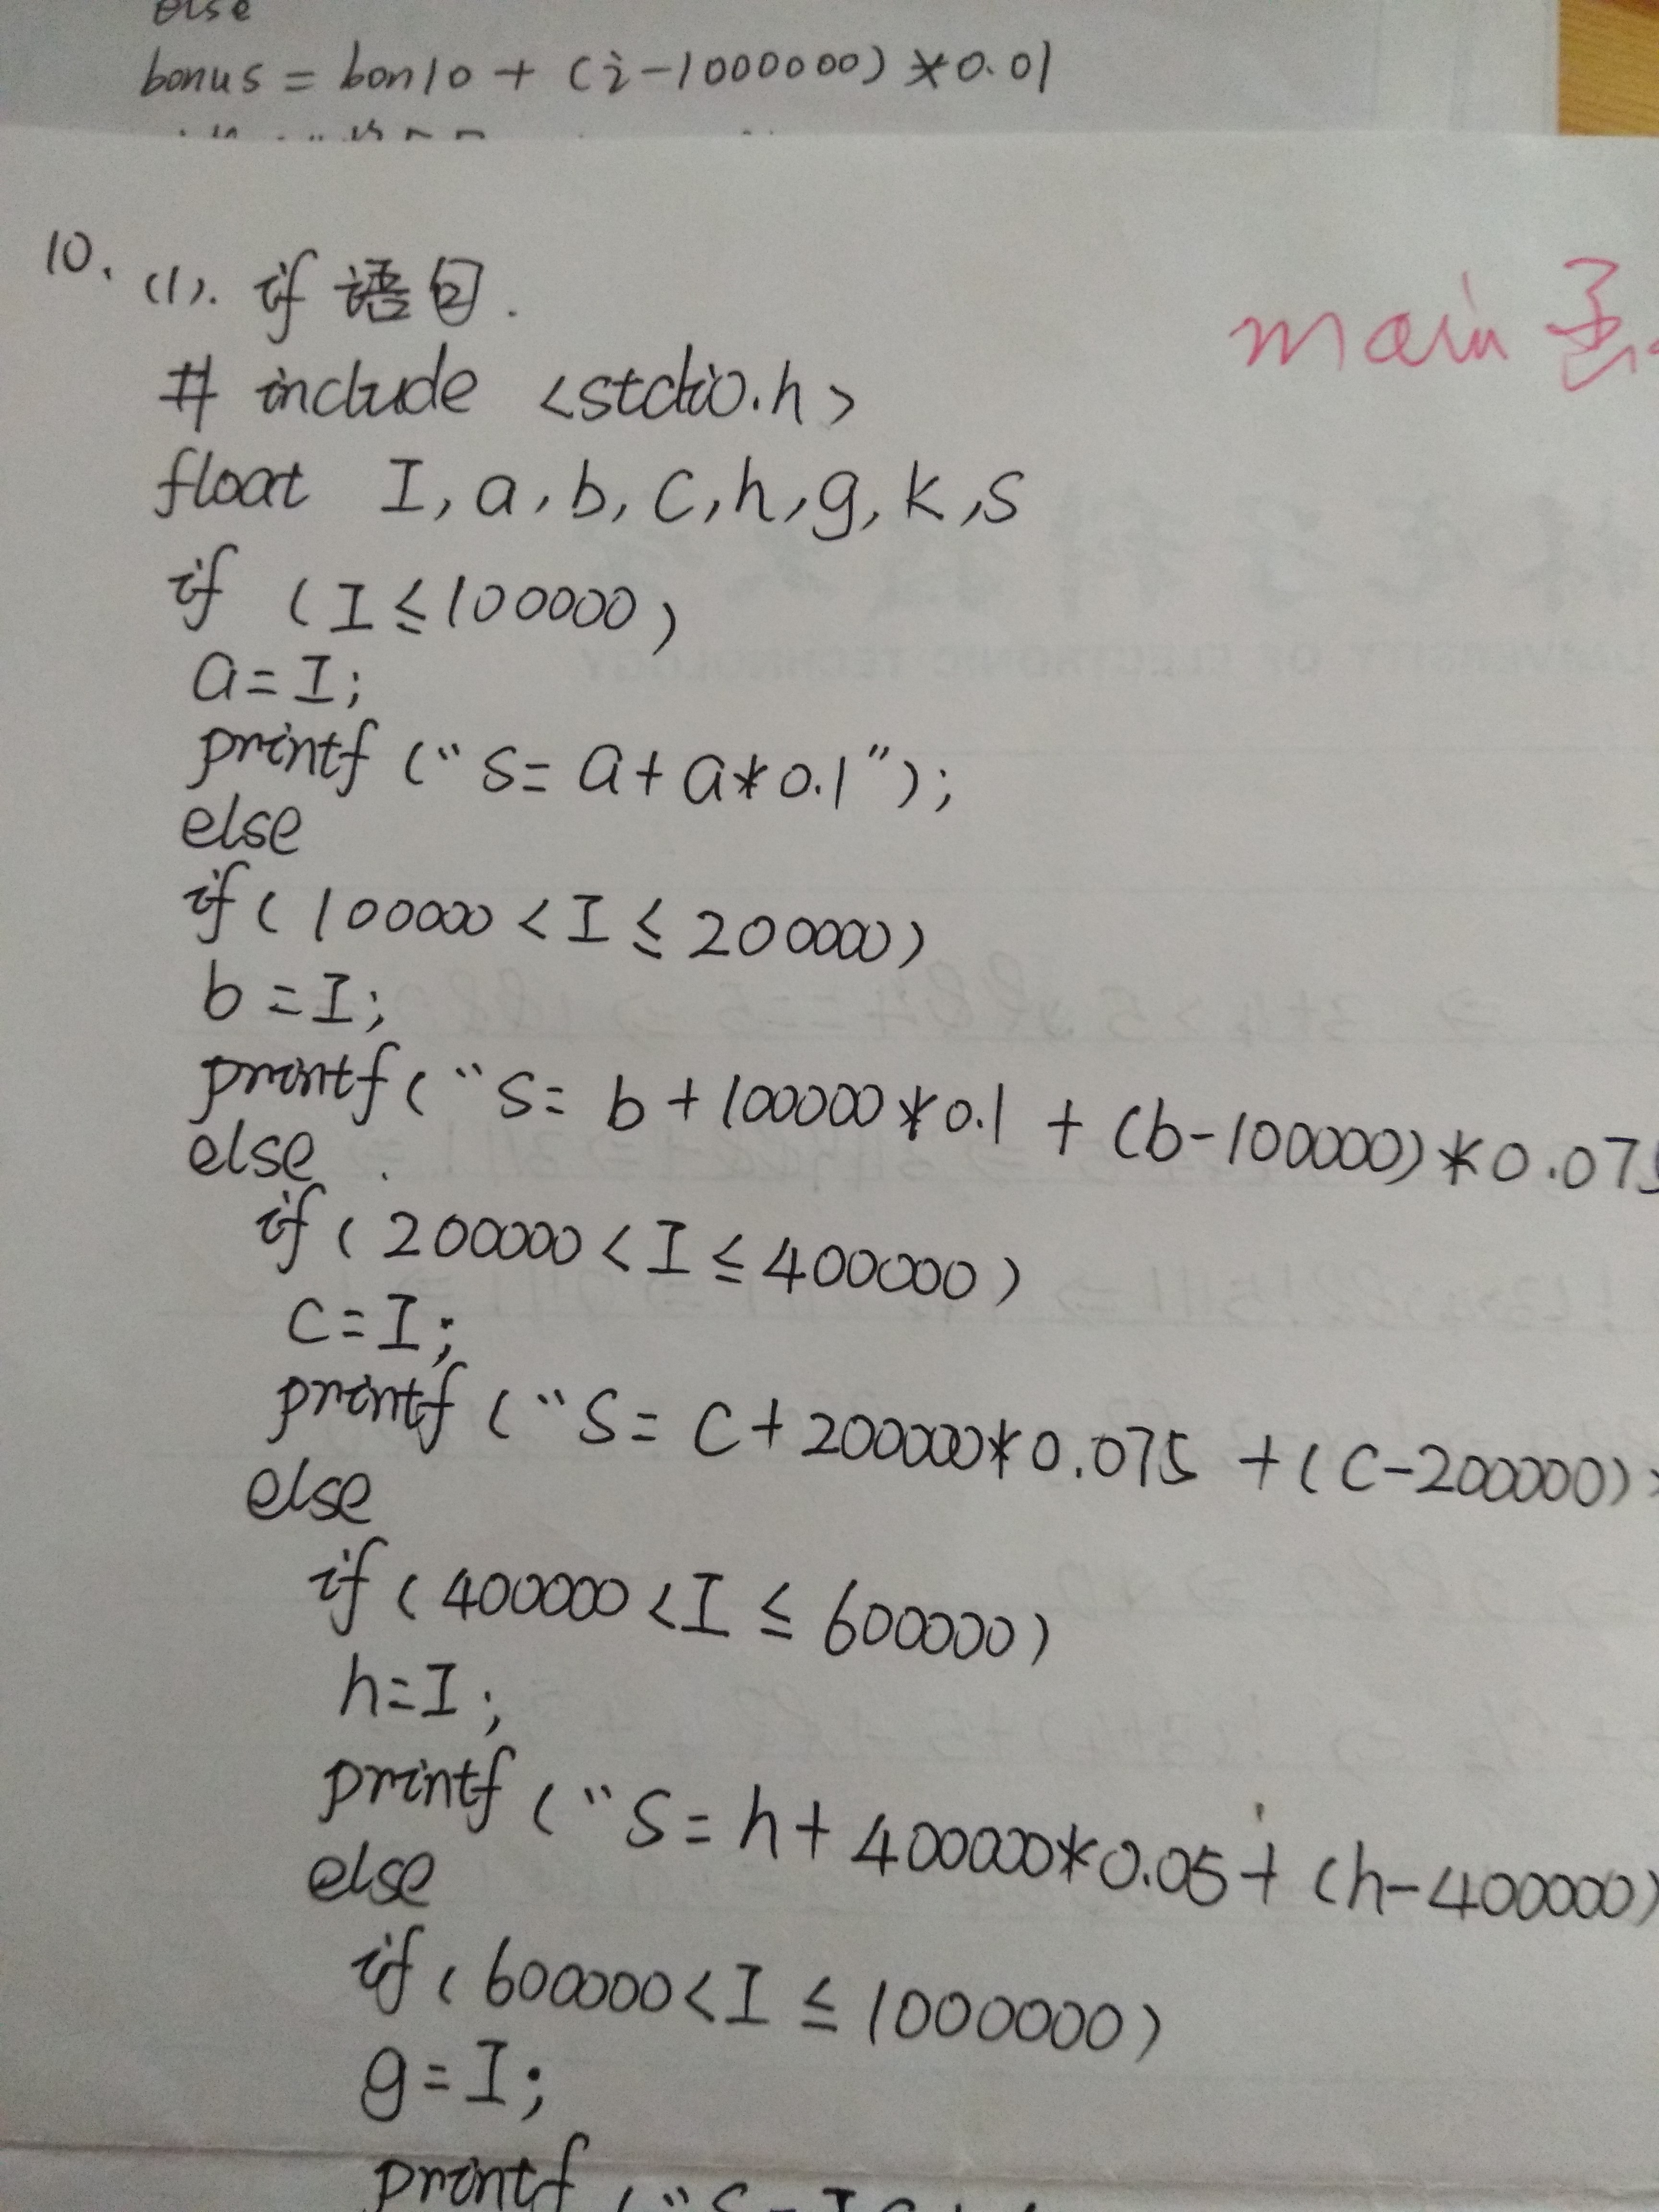 else
bonus = bon10 + (i-1000000)*0.01
10. (1). if 语句.
main
# include <stdio.h>
float I, a, b, c, h, g, k, s
if (I≤100000)
a=I;
printf (“s= a+a*0.1”);
else
if(100000<I≤200000)
b=I;
printf(“s= b+100000*0.1 + (b-100000)*0.075
else
if(200000<I≤400000)
c=I;
printf (“s= c+200000*0.075 +(c-200000)
else
if(400000<I≤600000)
h=I;
printf (“s=h+400000*0.05+ (h-400000)
else
if(600000<I≤1000000)
g=I;
printf (“s=